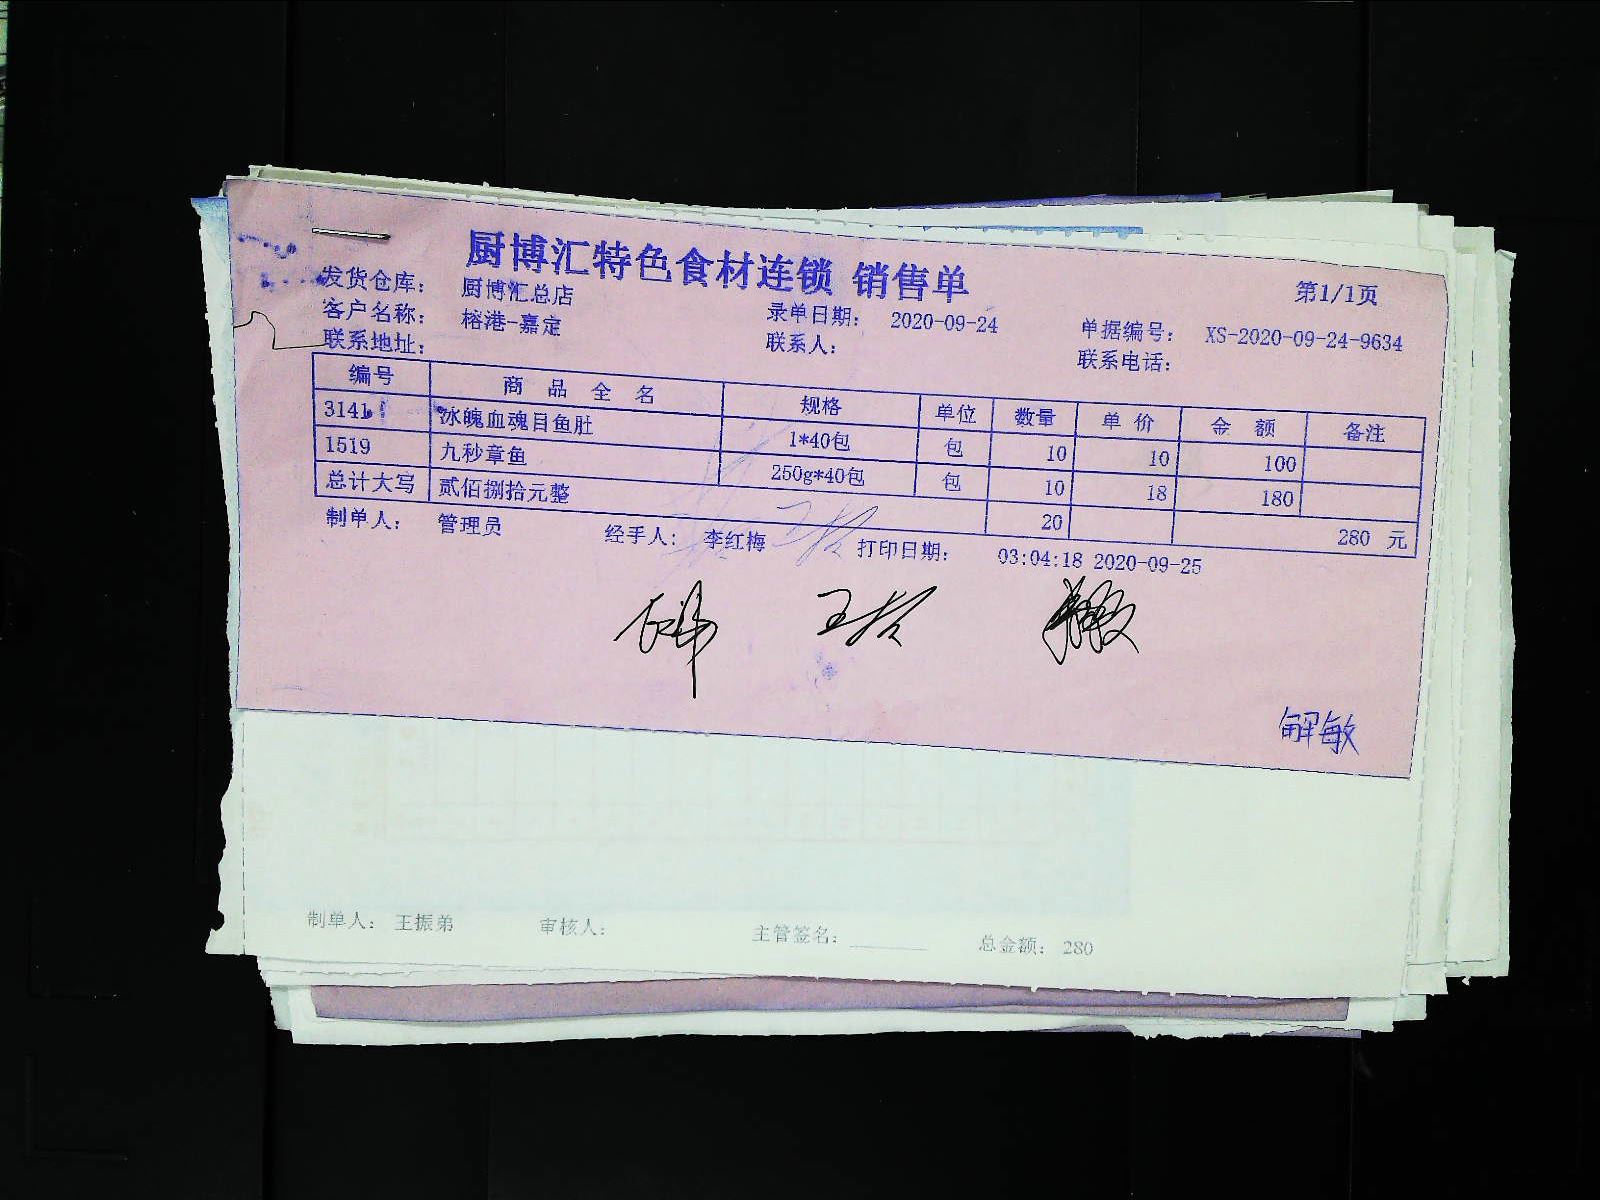 厨博汇特色食材连锁 销售单
第1/1页
发货仓库： 厨博汇总店
客户名称： 榕港-嘉定 录单日期： 2020-09-24 单据编号： XS-2020-09-24-9634
联系地址： 联系人： 联系电话：
编号 商品全名 规格 单位 数量 单价 金额 备注
3141 冰魄血魂目鱼肚 1*40包 包 10 10 100
1519 九秒章鱼 250g*40包 包 10 18 180
总计大写 贰佰捌拾元整 20 280 元
制单人： 管理员 经手人： 李红梅 打印日期： 03:04:18 2020-09-25
解敏
制单人： 王振弟 审核人： 主管签名： 总金额： 280